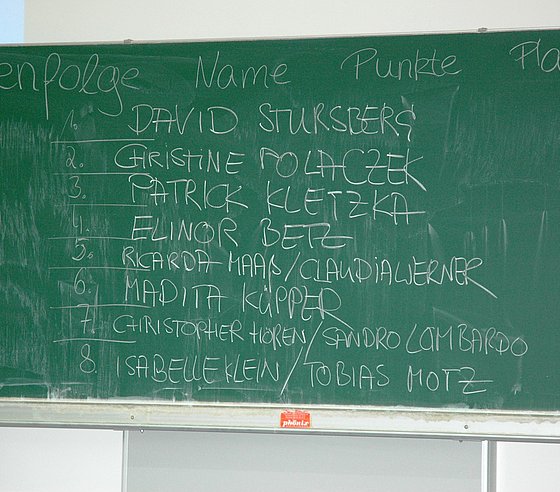 enfolge Name Punkte Pla
1. DAVID STURSBERG
2. CHRISTINE POLACZEK
3. PATRICK KLETZKA
4. ELINOR BETZ
5. RICARDA MAAß/CLAUDIA WERNER
6. MADITA KÜPPER
7. CHRISTOPHER HOREN/SANDRO LOMBARDO
8. ISABELLE KLEIN/TOBIAS MOTZ
phönix